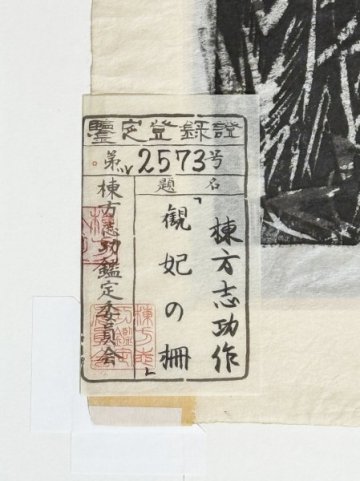 鑒定登録證
第V2573号
題名
棟方志功作
「観妃の柵」
棟方志功鑑定委員会